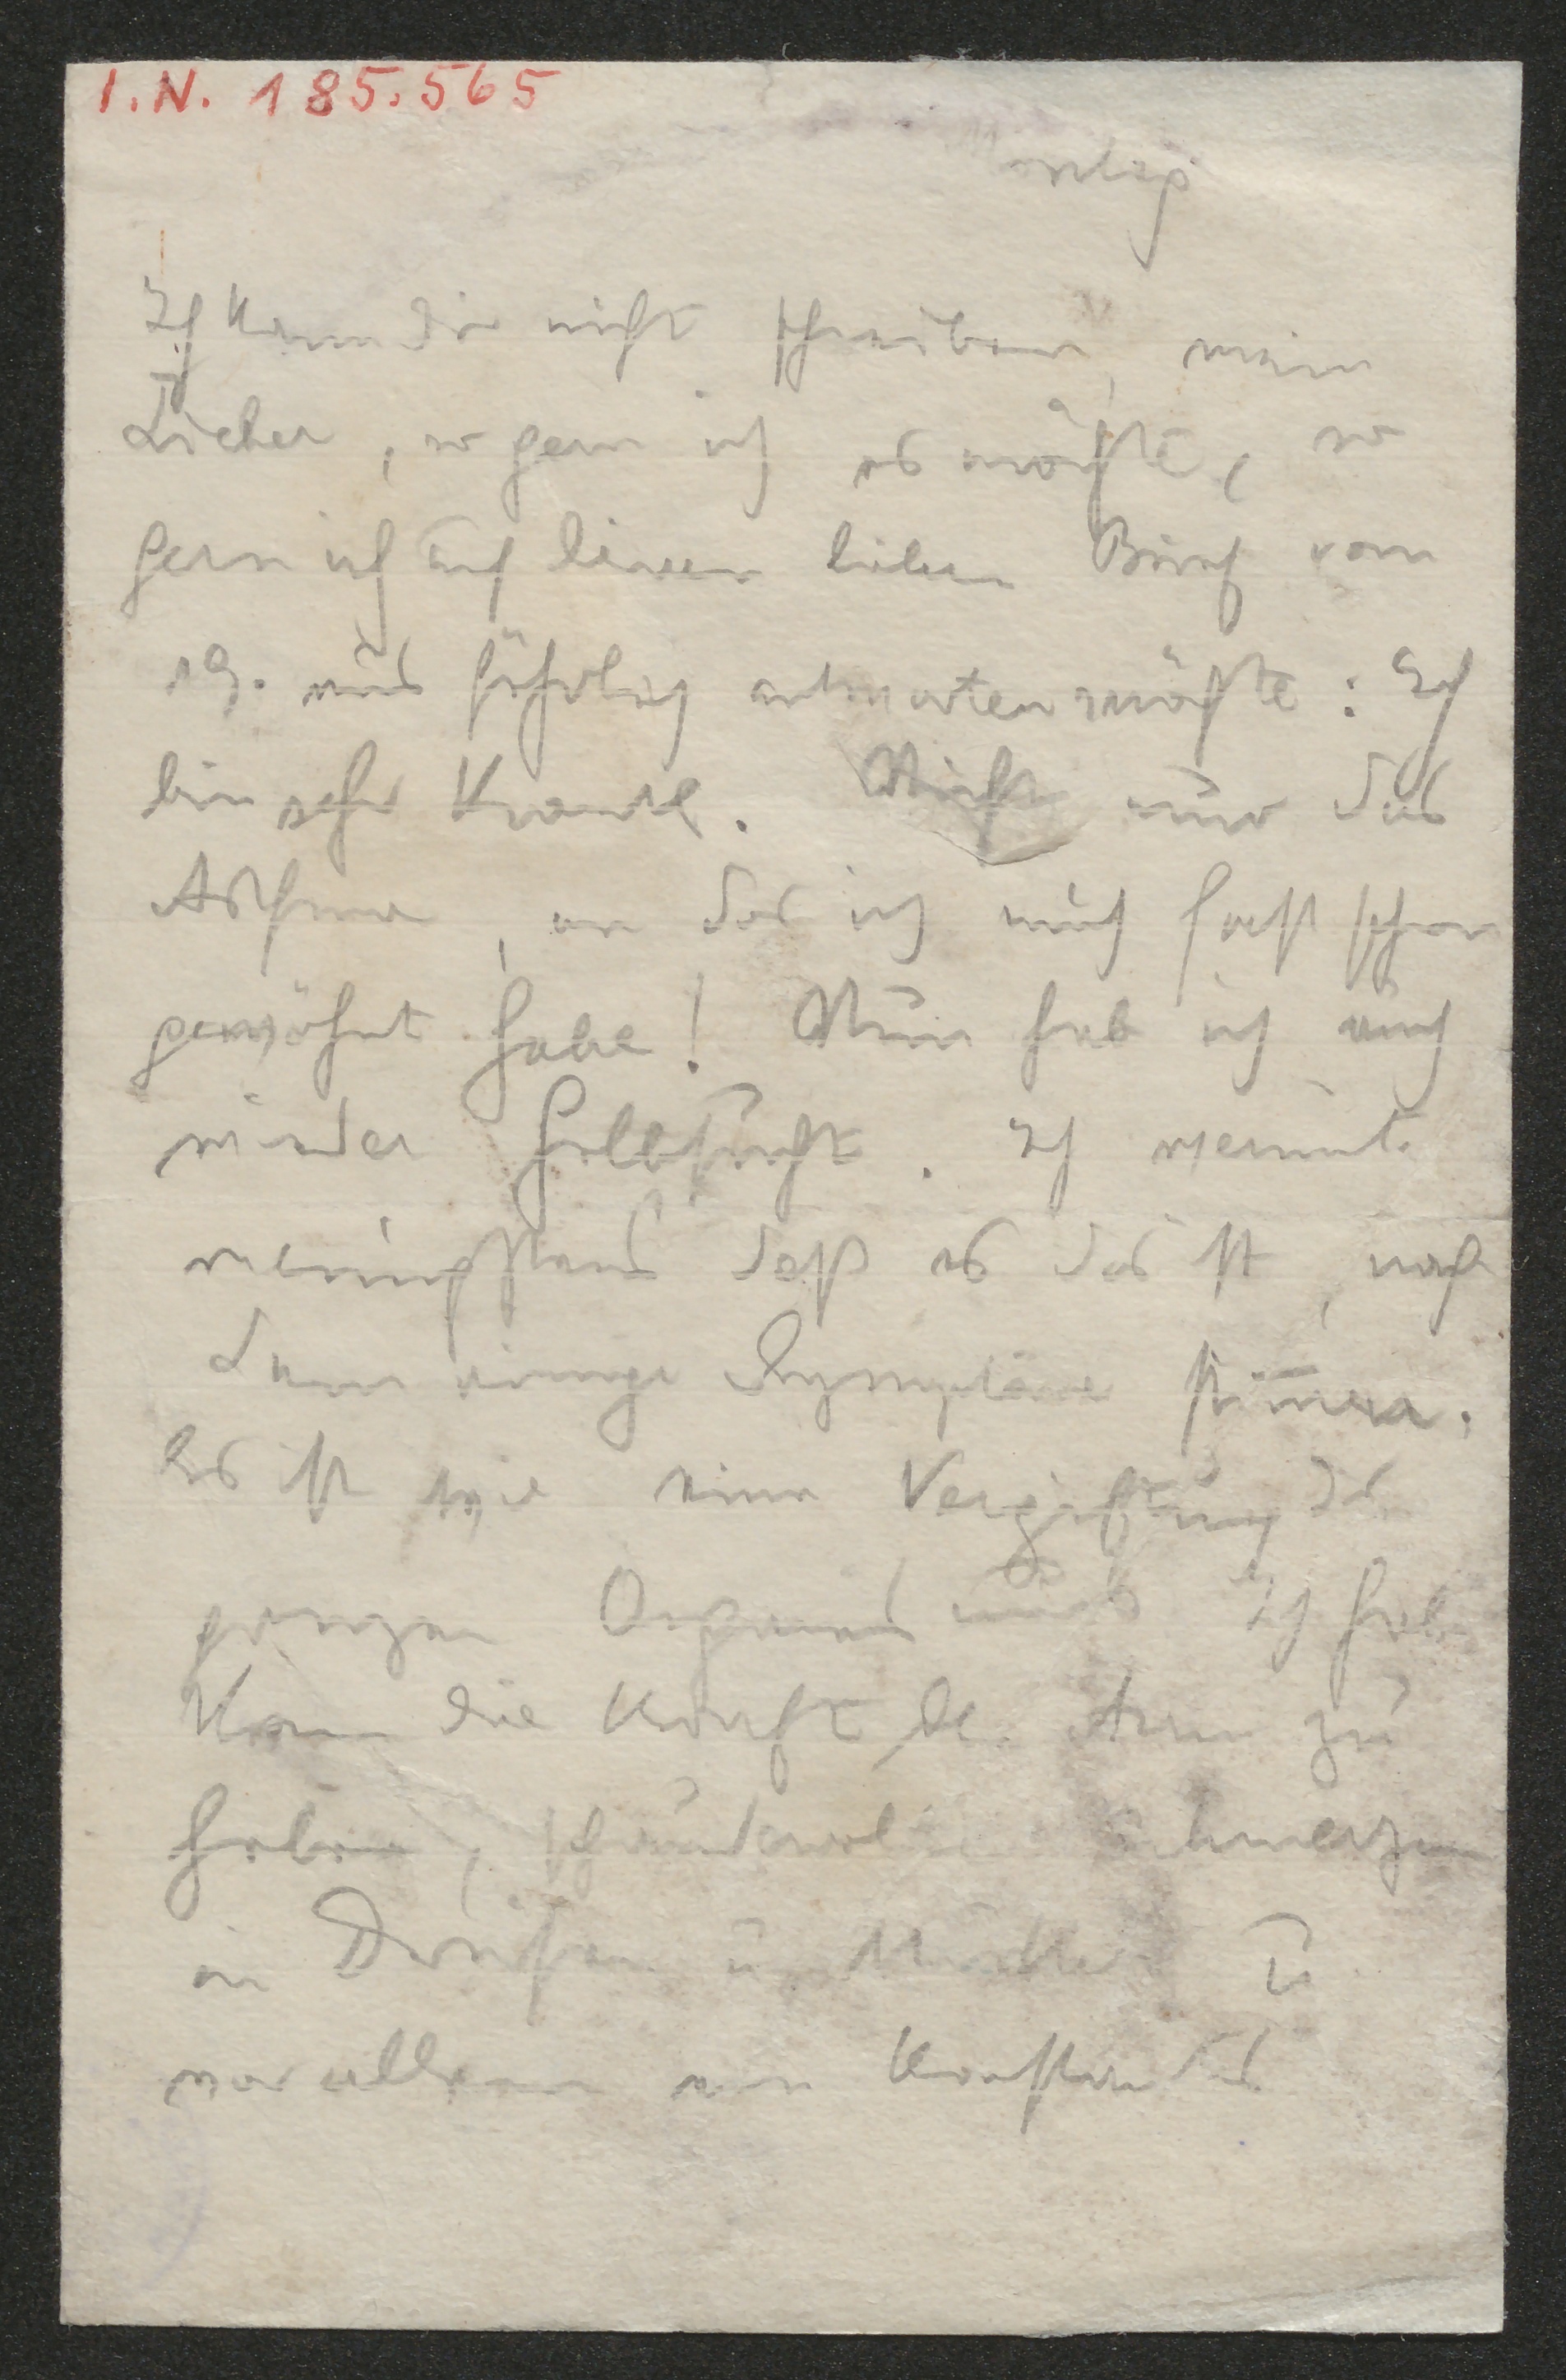 I.N. 185.565
Montag
Ich kann dir nicht schreiben, mein
Lieber, so gern ich es möchte, so
gern ich auf deinen lieben Brief vom
19. ausführlich antworten möchte: Ich
bin sehr krank. Nicht nur das
Asthma, an das ich mich fast schon
gewöhnt habe! Nun hab ich auch
wieder Gelbsucht. Ich vermute
wenigstens daß es das ist, nach
dem einige Symptome stimmen.
Es ist wie eine Vergiftung des
ganzen Organismus. Ich habe
kaum die Kraft den Arm zu
heben, schaudervolle Schmerzen
in Drüsen u. Muskeln u
vor allem ein konstantes